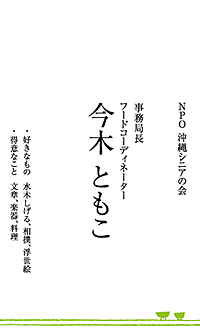 NPO 沖縄シニアの会
事務局長
フードコーディネーター
今木 ともこ
・好きなもの 水木しげる、相撲、浮世絵
・得意なこと 文章、楽器、料理